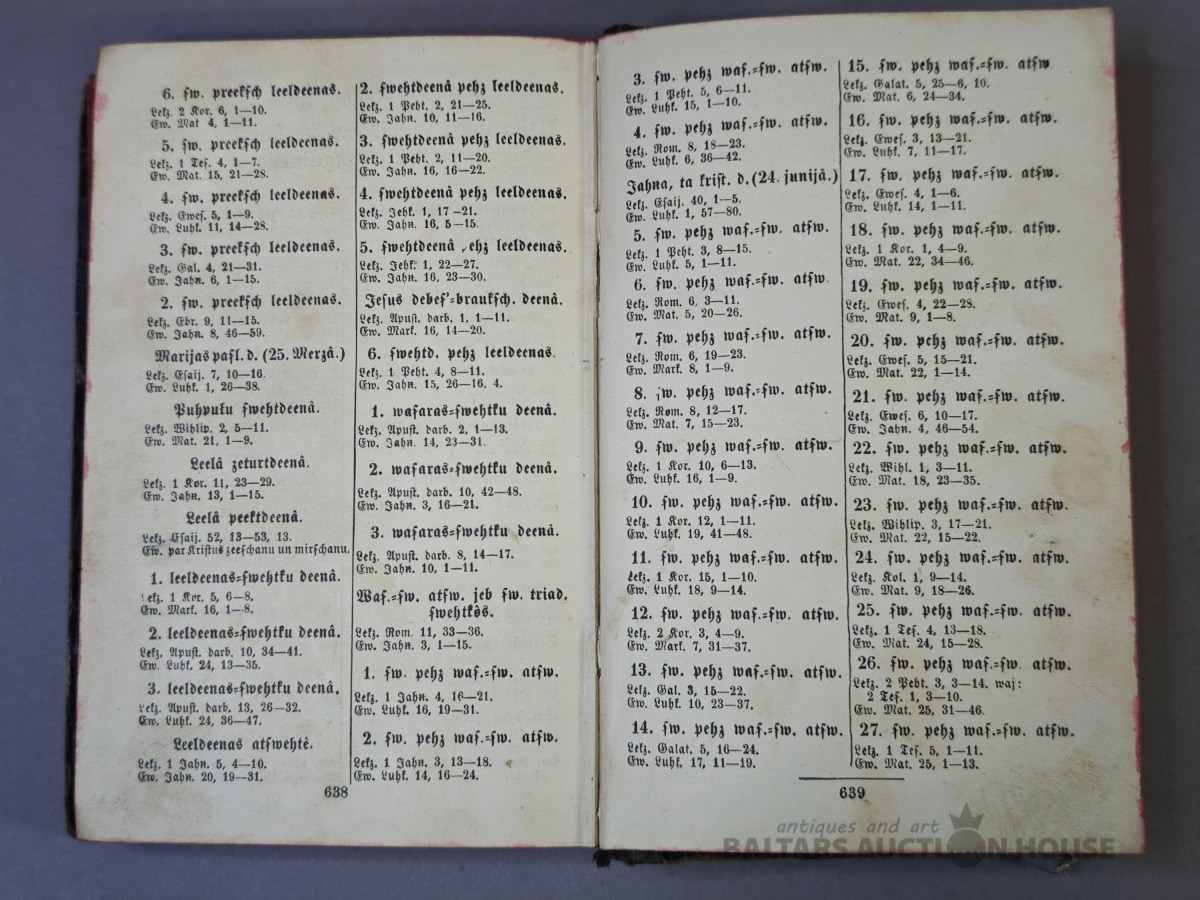 6. ſw. preekſch leeldeenas.
Lekz. 2 Kor. 6, 1—10.
Ew. Mat 4, 1—11.
5. ſw. preekſch leeldeenas.
Lekz. 1 Teſ. 4, 1—7.
Ew. Mat. 15, 21—28.
4. ſw. preekſch leeldeenas.
Lekz. Eweſ. 5, 1—9.
Ew. Luhk. 11, 14—28.
3. ſw. preekſch leeldeenas.
Lekz. Gal. 4, 21—31.
Ew. Jahn. 6, 1—15.
2. ſw. preekſch leeldeenas.
Lekz. Ebr. 9, 11—15.
Ew. Jahn. 8, 46—59.
Marijas paſl. d. (25. Merzâ.)
Lekz. Eſaij. 7, 10—16.
Ew. Luhk. 1, 26—38.
Puhpulu ſwehtdeenâ.
Lekz. Wihlip. 2, 5—11.
Ew. Mat. 21, 1—9.
Leelâ zeturtdeenâ.
Lekz. 1 Kor. 11, 23—29.
Ew. Jahn. 13, 1—15.
Leelâ peektdeenâ.
Lekz. Eſaij. 52, 13—53, 13.
Ew. par Kriſtus zeeſchanu un mirſchanu.
1. leeldeenas=ſwehtku deenâ.
Lekz. 1 Kor. 5, 6—8.
Ew. Mark. 16, 1—8.
2. leeldeenas=ſwehtku deenâ.
Lekz. Apuſt. darb. 10, 34—41.
Ew. Luhk. 24, 13—35.
3. leeldeenas=ſwehtku deenâ.
Lekz. Apuſt. darb. 13, 26—32.
Ew. Luhk. 24, 36—47.
Leeldeenas atſwehtê.
Lekz. 1 Jahn. 5, 4—10.
Ew. Jahn. 20, 19—31.
2. ſwehtdeenâ pehz leeldeenas.
Lekz. 1 Peht. 2, 21—25.
Ew. Jahn. 10, 11—16.
3. ſwehtdeenâ pehz leeldeenas.
Lekz. 1 Peht. 2, 11—20.
Ew. Jahn. 16, 16—22.
4. ſwehtdeenâ pehz leeldeenas.
Lekz. Jehk. 1, 17—21.
Ew. Jahn. 16, 5—15.
5. ſwehtdeenâ pehz leeldeenas.
Lekz. Jehk. 1, 22—27.
Ew. Jahn. 16, 23—30.
Jeſus debeſ'=braukſch. deenâ.
Lekz. Apuſt. darb. 1, 1—11.
Ew. Mark. 16, 14—20.
6. ſwehtd. pehz leeldeenas.
Lekz. 1 Peht. 4, 8—11.
Ew. Jahn. 15, 26—16, 4.
1. waſaras=ſwehtku deenâ.
Lekz. Apuſt. darb. 2, 1—13.
Ew. Jahn. 14, 23—31.
2. waſaras=ſwehtku deenâ.
Lekz. Apuſt. darb. 10, 42—48.
Ew. Jahn. 3, 16—21.
3. waſaras=ſwehtku deenâ.
Lekz. Apuſt. darb. 8, 14—17.
Ew. Jahn. 10, 1—11.
Waſ.=ſw. atſw. jeb ſw. triad.
ſwehtkôs.
Lekz. Rom. 11, 33—36.
Ew. Jahn. 3, 1—15.
1. ſw. pehz waſ.=ſw. atſw.
Lekz. 1 Jahn. 4, 16—21.
Ew. Luhk. 16, 19—31.
2. ſw. pehz waſ.=ſw. atſw.
Lekz. 1 Jahn. 3, 13—18.
Ew. Luhk. 14, 16—24.
638
3. ſw. pehz waſ.=ſw. atſw.
Lekz. 1 Peht. 5, 6—11.
Ew. Luhk. 15, 1—10.
4. ſw. pehz waſ.=ſw. atſw.
Lekz. Rom. 8, 18—23.
Ew. Luhk. 6, 36—42.
Jahna, ta kriſt. d. (24. junijâ.)
Lekz. Eſaij. 40, 1—5.
Ew. Luhk. 1, 57—80.
5. ſw. pehz waſ.=ſw. atſw.
Lekz. 1 Peht. 3, 8—15.
Ew. Luhk. 5, 1—11.
6. ſw. pehz waſ.=ſw. atſw.
Lekz. Rom. 6, 3—11.
Ew. Mat. 5, 20—26.
7. ſw. pehz waſ.=ſw. atſw.
Lekz. Rom. 6, 19—23.
Ew. Mark. 8, 1—9.
8. ſw. pehz waſ.=ſw. atſw.
Lekz. Rom. 8, 12—17.
Ew. Mat. 7, 15—23.
9. ſw. pehz waſ.=ſw. atſw.
Lekz. 1 Kor. 10, 6—13.
Ew. Luhk. 16, 1—9.
10. ſw. pehz waſ.=ſw. atſw.
Lekz. 1 Kor. 12, 1—11.
Ew. Luhk. 19, 41—48.
11. ſw. pehz waſ.=ſw. atſw.
Lekz. 1 Kor. 15, 1—10.
Ew. Luhk. 18, 9—14.
12. ſw. pehz waſ.=ſw. atſw.
Lekz. 2 Kor. 3, 4—9.
Ew. Mark. 7, 31—37.
13. ſw. pehz waſ.=ſw. atſw.
Lekz. Gal. 3, 15—22.
Ew. Luhk. 10, 23—37.
14. ſw. pehz waſ.=ſw. atſw.
Lekz. Galat. 5, 16—24.
Ew. Luhk. 17, 11—19.
15. ſw. pehz waſ.=ſw. atſw
Lekz. Galat. 5, 25—6, 10.
Ew. Mat. 6, 24—34.
16. ſw. pehz waſ.=ſw. atſw.
Lekz. Eweſ. 3, 13—21.
Ew. Luhk. 7, 11—17.
17. ſw. pehz waſ.=ſw. atſw.
Lekz. Eweſ. 4, 1—6.
Ew. Luhk. 14, 1—11.
18. ſw. pehz waſ.=ſw. atſw.
Lekz. 1 Kor. 1, 4—9.
Ew. Mat. 22, 34—46.
19. ſw. pehz waſ.=ſw. atſw.
Lekz. Eweſ. 4, 22—28.
Ew. Mat. 9, 1—8.
20. ſw. pehz waſ.=ſw. atſw.
Lekz. Eweſ. 5, 15—21.
Ew. Mat. 22, 1—14.
21. ſw. pehz waſ.=ſw. atſw.
Lekz. Eweſ. 6, 10—17.
Ew. Jahn. 4, 46—54.
22. ſw. pehz waſ.=ſw. atſw.
Lekz. Wihl. 1, 3—11.
Ew. Mat. 18, 23—35.
23. ſw. pehz waſ.=ſw. atſw.
Lekz. Wihlip. 3, 17—21.
Ew. Mat. 22, 15—22.
24. ſw. pehz waſ.=ſw. atſw.
Lekz. Kol. 1, 9—14.
Ew. Mat. 9, 18—26.
25. ſw. pehz waſ.=ſw. atſw.
Lekz. 1 Teſ. 4, 13—18.
Ew. Mat. 24, 15—28.
26. ſw. pehz waſ.=ſw. atſw.
Lekz. 2 Peht. 3, 3—14. waj:
2 Teſ. 1, 3—10.
Ew. Mat. 25, 31—46.
27. ſw. pehz waſ.=ſw. atſw.
Lekz. 1 Teſ. 5, 1—11.
Ew. Mat. 25, 1—13.
639
antiques and art
BALTARS AUCTION HOUSE